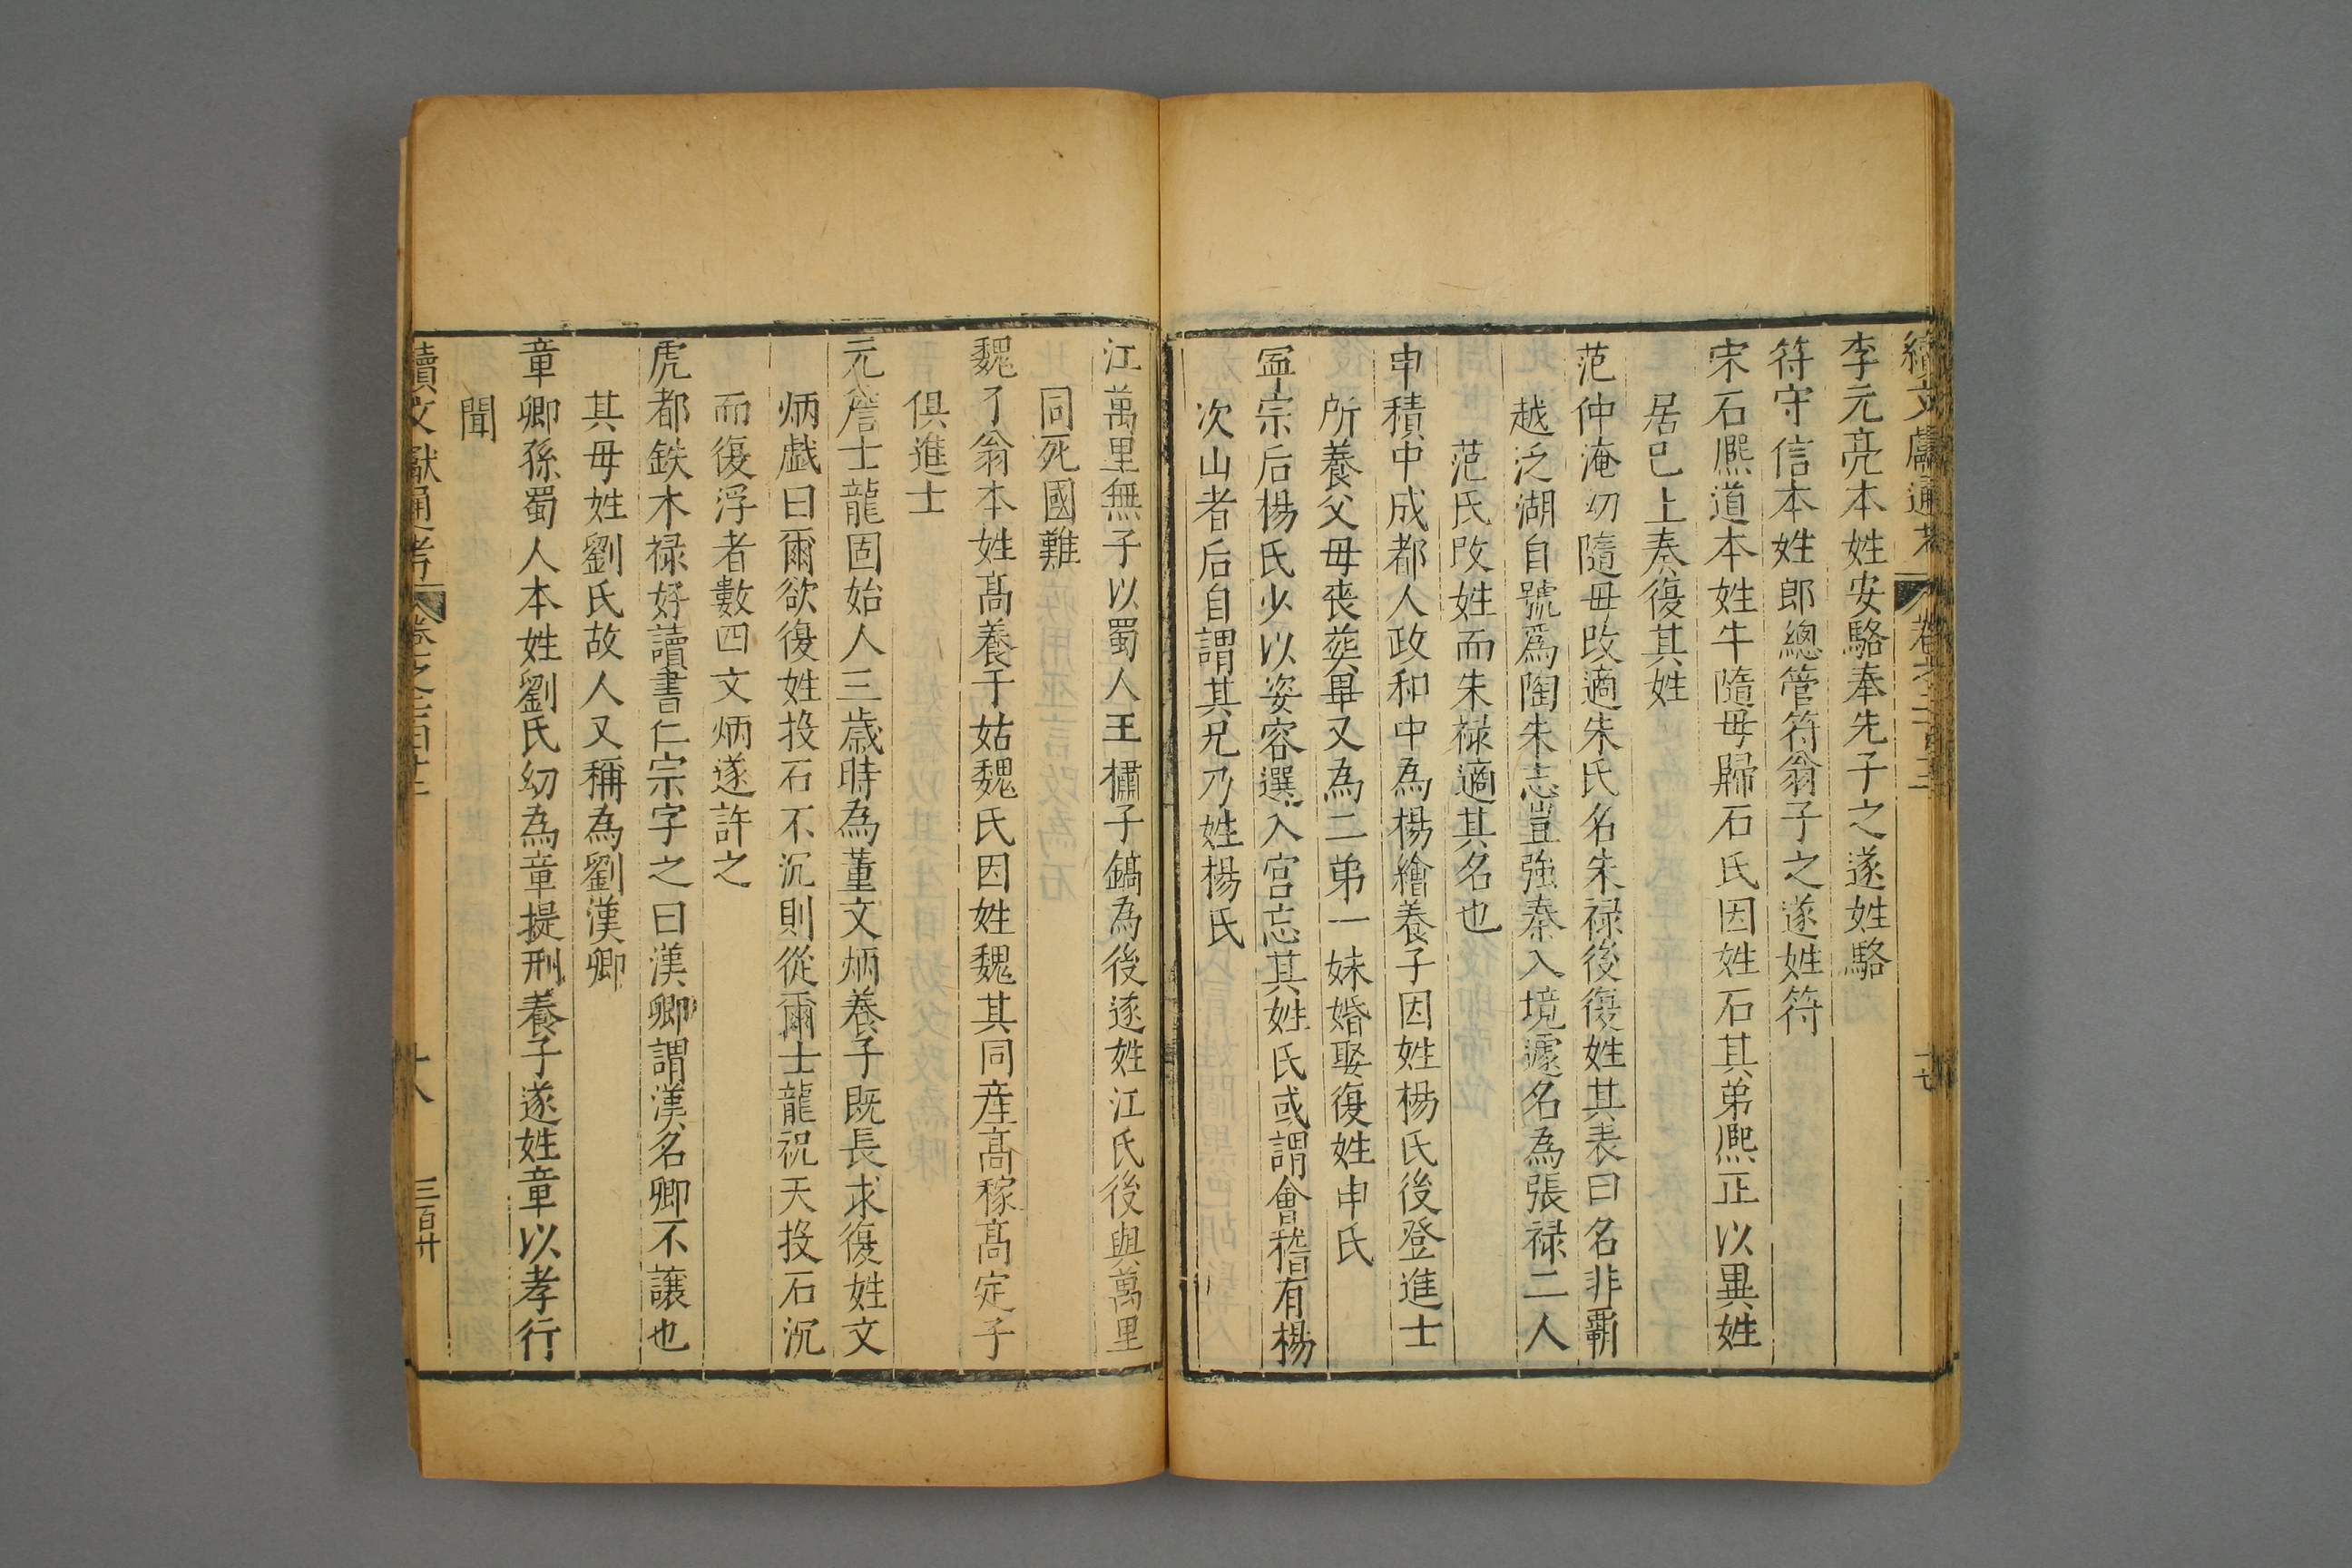 續文獻通考 卷之二百十三 十七
李元亮本姓安駱奉先子之遂姓駱
符守信本姓郎總管符翁子之遂姓符
宋石熈道本姓牛隨母歸石氏因姓石其弟熈正以異姓
居巳上奏復其姓
范仲淹㓜隨毋改適朱氏名朱禄後復姓其表曰名非覇
越泛湖自號爲陶朱志豈強秦入境遽名為張禄二人
范氏改姓而朱禄適其名也
申積中成都人政和中為楊繪養子因姓楊氏後登進士
所養父毋丧塟畢又為二弟一妹婚娶復姓申氏
寧宗后楊氏少以姿容選入宫忘其姓氏或謂會稽有楊
次山者后自謂其兄乃姓楊氏
江萬里無子以蜀人王橚子鎬為後逐姓江氏後與萬里
同死國難
魏了翁本姓髙養于姑魏氏因姓魏其同産髙稼髙定子
俱進士
元詹士龍固始人三歲時為董文炳養子既長求復姓文
炳戯曰爾欲復姓投石不沉則從爾士龍祝天投石沉
而復浮者數四文炳遂許之
虎都鉄木禄好讀書仁宗字之曰漢卿謂漢名卿不讓也
其毋姓劉氏故人又稱為劉漢卿
章卿孫蜀人本姓劉氏㓜為章提刑養子遂姓章以孝行
聞
續文獻通考 卷之二百十三 十八 三百廿